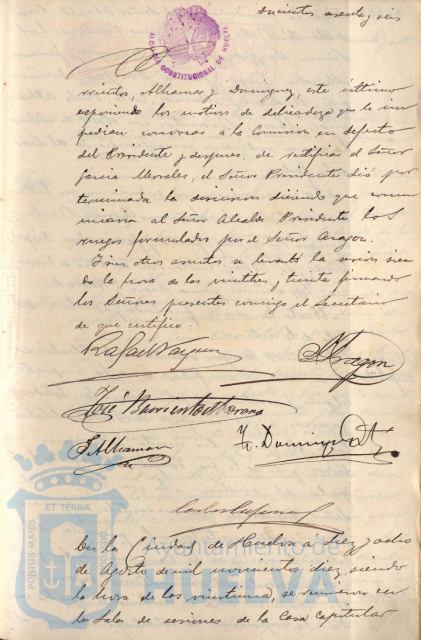 Doscientos sesenta y seis
ALCALDIA CONSTITUCIONAL DE HUELVA
rrientos, Alhama y Dominguez, este último
exponiendo los motivos de delicadeza que le im
pedian convocar á la Comision en defecto
del Presidente y despues de rectificar el Señor
Garcia Morales, el Señor Presidente dió por
terminada la discusion diciendo que comu
nicaria al Señor Alcalde Presidente los
ruegos formulados por el Señor Aragon.
Y sin otros asuntos se levantó la sesion sien
do la hora de las veintitres y treinta firmando
los Señores presentes conmigo el Secretario
de que certifico.
Rafael Vazquez
Aragon
José Barrientos
F. Dominguez
En la Ciudad de Huelva a diez y ocho
de Agosto de mil novecientos diez, siendo
la hora de las veintiuna, se reunieron en
la Sala de sesiones de la Casa Capitular
PORTUS MARIS ET TERRAE
Ayuntamiento de
HUELVA